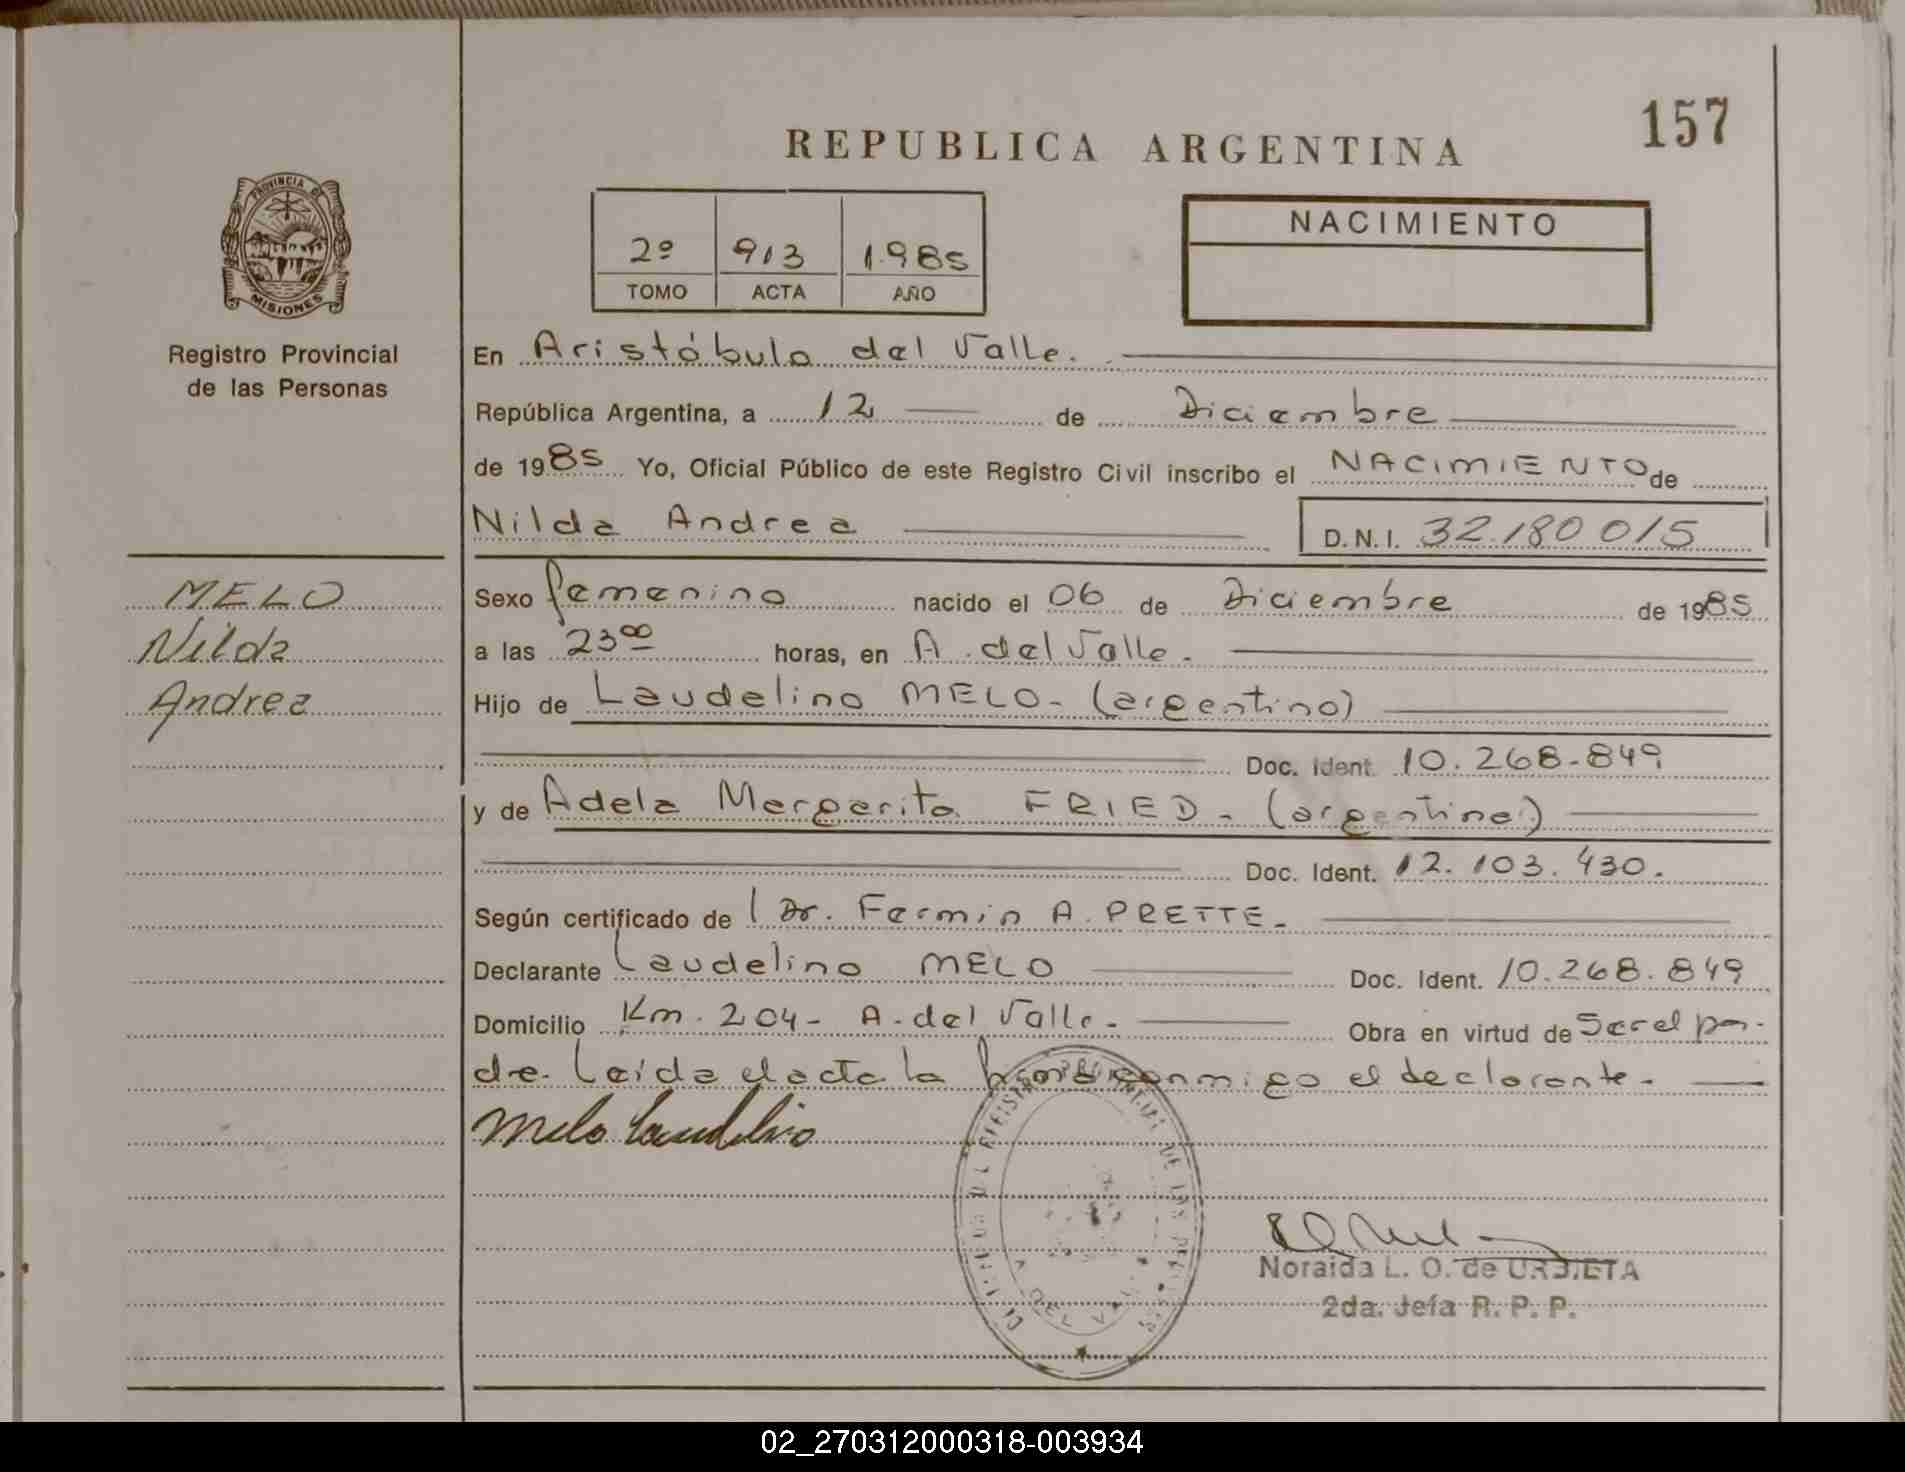 157
REPUBLICA ARGENTINA
PROVINCIA DE
MISIONES
Registro Provincial
de las Personas
2º 913 1985
TOMO ACTA AÑO
NACIMIENTO
En Aristóbulo del Valle.
República Argentina, a 12 de Diciembre
de 1985 Yo, Oficial Público de este Registro Civil inscribo el NACIMIENTO de
Nilda Andrea D.N.I. 32.180 015
MELO
Nilda
Andrea
Sexo femenino nacido el 06 de Diciembre de 1985
a las 23 00 horas, en A. del Valle.
Hijo de Laudelino MELO - (argentino)
Doc. Ident. 10.268-849
y de Adela Margarita FRIED - (argentina)
Doc. Ident. 12.103.430.
Según certificado de l Dr. Fermin A. PRETTE.
Declarante Laudelino MELO Doc. Ident. 10.268.849
Domicilio Km. 204 - A. del Valle. Obra en virtud de Ser el pa-
dre. Leida el acta la firma conmigo el declarante.
Melo Laudelino
REGISTRO PROVINCIAL DE LAS PERSONAS
A. DEL VALLE
Noraida L. O. de URBIETA
2da. Jefa R. P. P.
02_270312000318-003934